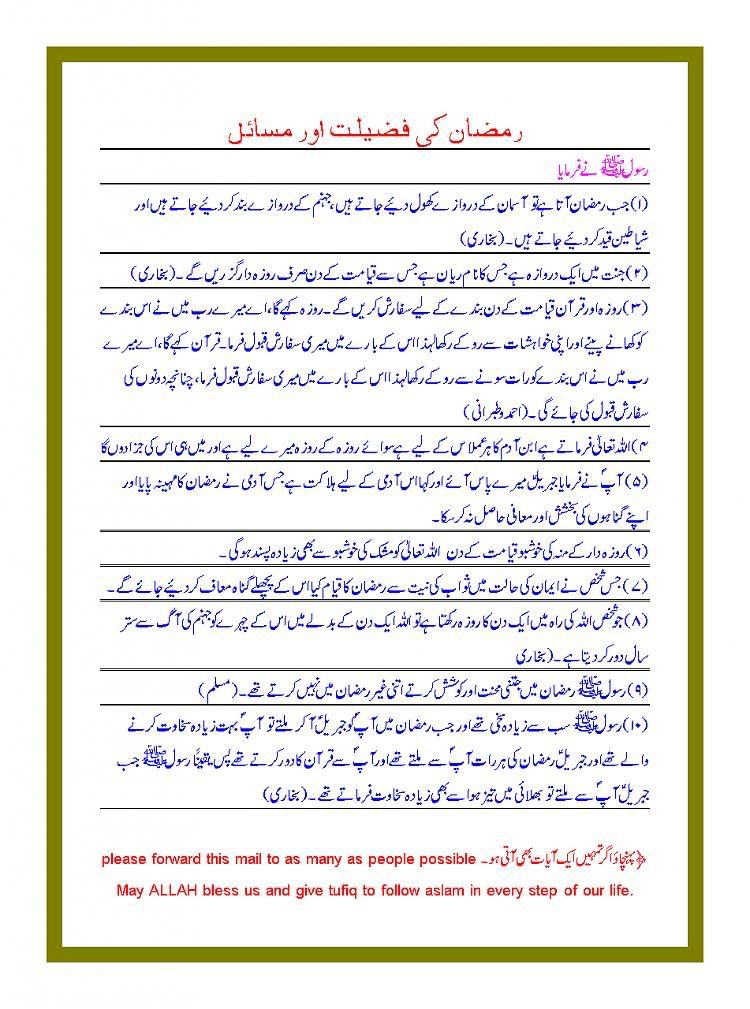 رمضان کی فضیلت اور مسائل
رسول ﷺ نے فرمایا
(۱) جب رمضان آتا ہے تو آسمان کے دروازے کھول دیئے جاتے ہیں، جہنم کے دروازے بند کر دیئے جاتے ہیں اور
شیاطین قید کر دیئے جاتے ہیں۔ (بخاری)
(۲) جنت میں ایک دروازہ ہے جس کا نام ریان ہے جس سے قیامت کے دن صرف روزہ دار گزریں گے۔ (بخاری)
(۳) روزہ اور قرآن قیامت کے دن بندے کے لیے سفارش کریں گے۔ روزہ کہے گا، اے میرے رب میں نے اس بندے
کو کھانے پینے اور اپنی خواہشات سے روکے رکھا لہذا اس کے بارے میں میری سفارش قبول فرما۔ قرآن کہے گا، اے میرے
رب میں نے اس بندے کو رات سونے سے روکے رکھا لہذا اس کے بارے میں میری سفارش قبول فرما، چنانچہ دونوں کی
سفارش قبول کی جائے گی۔ (احمد و طبرانی)
(۴) اللہ تعالیٰ فرماتے ہے ابن آدم کا ہر عمل اس کے لیے ہے سوائے روزہ کے روزہ میرے لیے ہے اور میں ہی اس کی جزا دوں گا
(۵) آپؐ نے فرمایا جبریلؑ میرے پاس آئے اور کہا اس آدمی کے لیے ہلاکت ہے جس آدمی نے رمضان کا مہینہ پایا اور
اپنے گناہوں کی بخشش اور معافی حاصل نہ کر سکا۔
(۶) روزہ دار کے منہ کی خوشبو قیامت کے دن اللہ تعالیٰ کو مشک کی خوشبو سے بھی زیادہ پسند ہو گی۔
(۷) جس شخص نے ایمان کی حالت میں ثواب کی نیت سے رمضان کا قیام کیا اس کے پچھلے گناہ معاف کر دیئے جائے گے۔
(۸) جو شخص اللہ کی راہ میں ایک دن کا روزہ رکھتا ہے تو اللہ ایک دن کے بدلے میں اس کے چہرے کو جہنم کی آگ سے ستر
سال دور کر دیتا ہے۔ (بخاری
(۹) رسول ﷺ رمضان میں جتنی محنت اور کوشش کرتے اتنی غیر رمضان میں نہیں کرتے تھے۔ (مسلم)
(۱۰) رسول ﷺ سب سے زیادہ سخی تھے اور جب رمضان میں آپؐ کو جبریلؑ آ کر ملتے تو آپؐ بہت زیادہ سخاوت کرنے
والے تھے اور جبریلؑ رمضان کی ہر رات آپؐ سے ملتے تھے اور آپؐ سے قرآن کا دور کرتے تھے پس یقیناً رسول ﷺ جب
جبریلؑ آپؐ سے ملتے تو بھلائی میں تیز ہوا سے بھی زیادہ سخاوت فرماتے تھے۔ (بخاری)
﴿پہنچاؤ اگر تمہیں ایک آیات بھی آتی ہو۔ please forward this mail to as many as people possible
May ALLAH bless us and give tufiq to follow aslam in every step of our life.